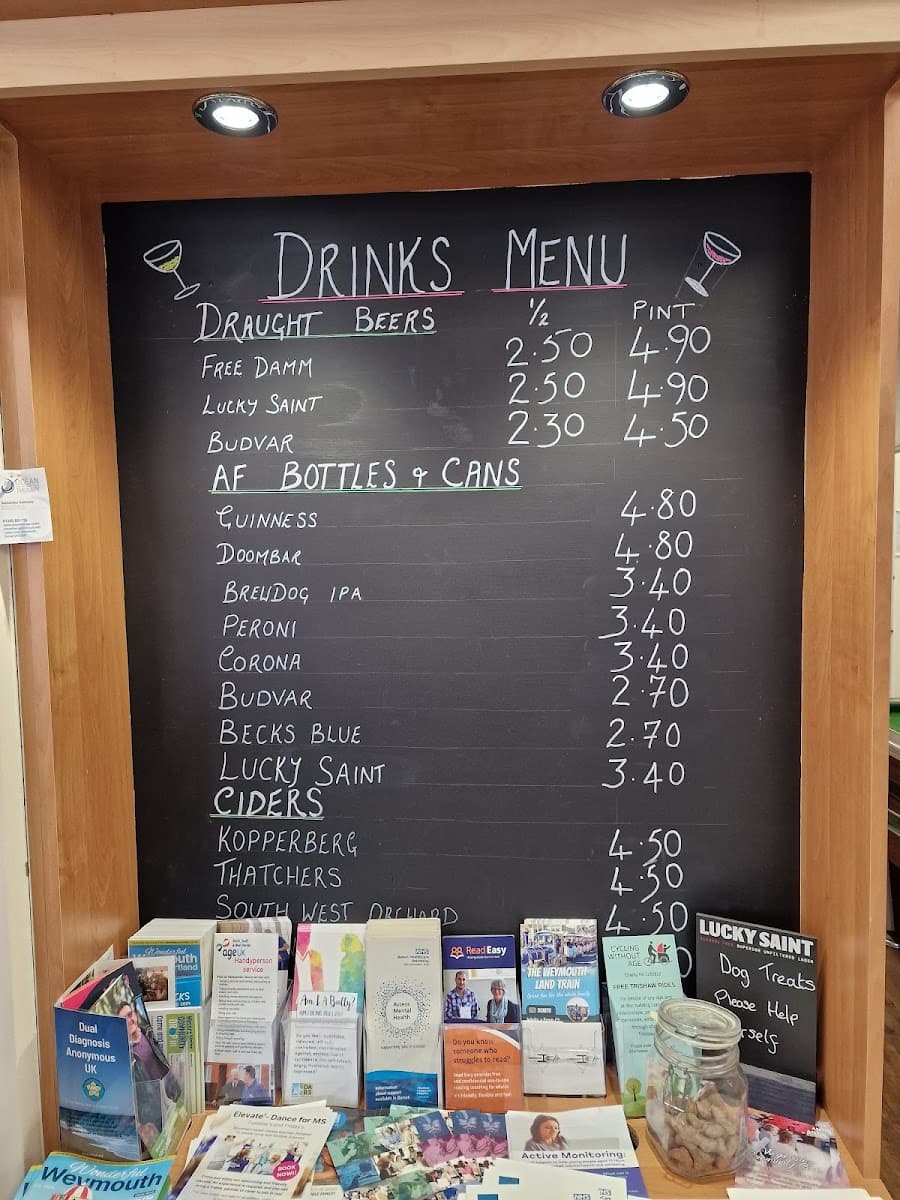 DRINKS MENU
DRAUGHT BEERS ½ PINT
FREE DAMM 2.50 4.90
LUCKY SAINT 2.50 4.90
BUDVAR 2.30 4.50
AF BOTTLES & CANS
GUINNESS 4.80
DOOMBAR 4.80
BREWDOG IPA 3.40
PERONI 3.40
CORONA 3.40
BUDVAR 2.70
BECKS BLUE 2.70
LUCKY SAINT 3.40
CIDERS
KOPPERBERG 4.50
THATCHERS 4.50
SOUTH WEST ORCHARD 4.50
OCEAN
Wonderful
Dual
Diagnosis
Anonymous
UK
ageUK
Handyperson
service
Am I A Bully?
NHS
Access
Mental
Health
Read Easy
Do you know
someone who
struggles to read?
THE WEYMOUTH
LAND TRAIN
CYCLING
WITHOUT
AGE
FREE TRISHAW RIDES
LUCKY SAINT
Dog Treats
Please Help
rself
Wonderful
Weymouth
Elevate - Dance for MS
BOOK
NOW!
Active Monitoring:
NHS